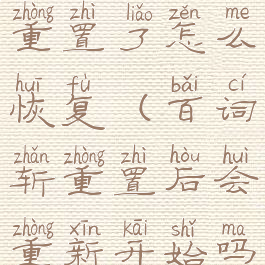 zhòng zhì liǎo zěn me
重置了怎么
huī fù bǎi cí
恢复（百词
zhǎn zhòng zhì hòu huì
斩重置后会
zhòng xīn kāi shǐ ma
重新开始吗